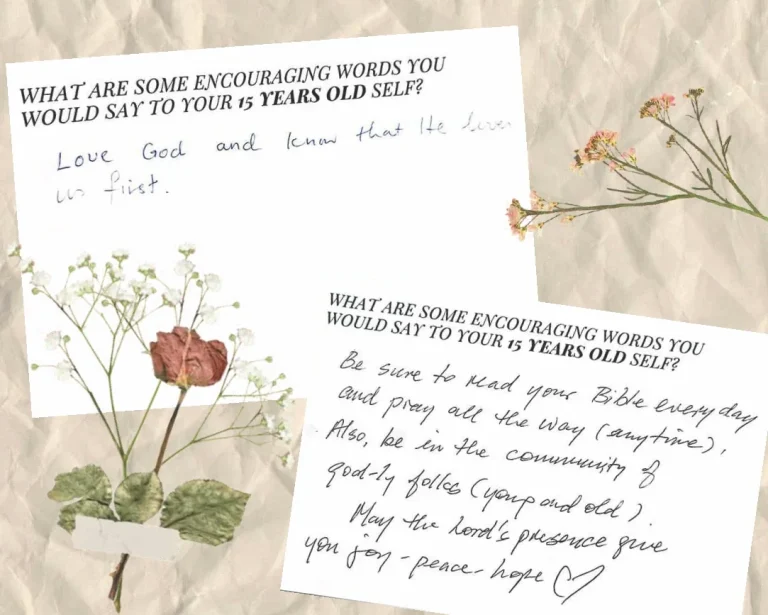 WHAT ARE SOME ENCOURAGING WORDS YOU
WOULD SAY TO YOUR 15 YEARS OLD SELF?
Love God and know that He loves
us first.
WHAT ARE SOME ENCOURAGING WORDS YOU
WOULD SAY TO YOUR 15 YEARS OLD SELF?
Be sure to read your Bible everyday
and pray all the way (anytime).
Also, be in the community of
god-ly folks (young and old).
May the Lord's presence give
you joy - peace - hope ♡